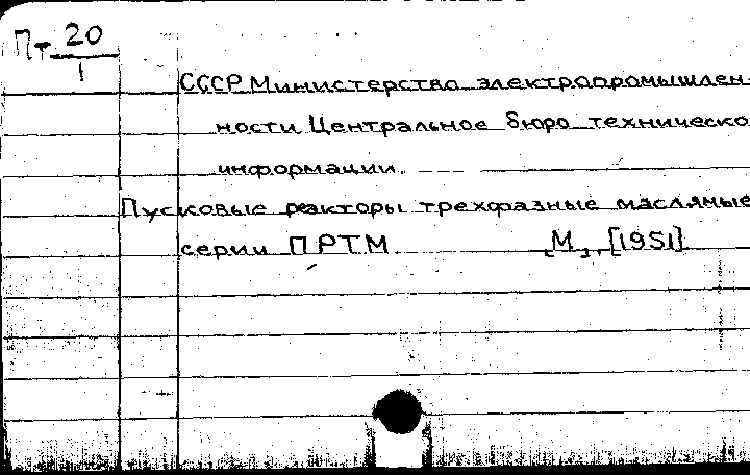 Пт 20
1
СССР Министерство электропромышлен
ности Центральное бюро техническо
информации.
Пусковые реакторы трехфазные масляные
серии ПРТМ [М], [1951]